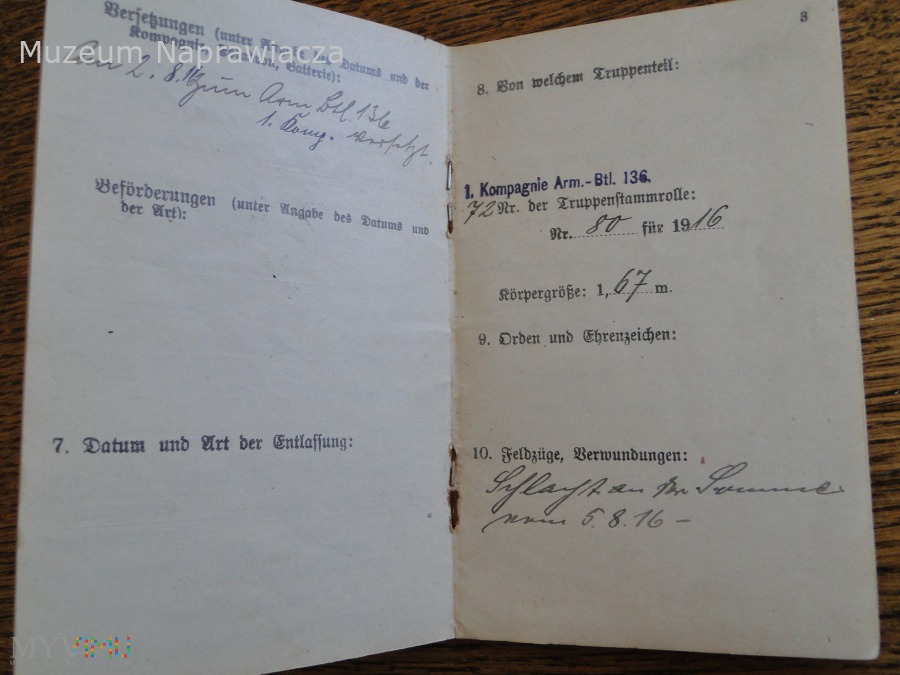 Versetzungen (unter Datums und der
Kompagnie Batterie):
Muzeum Naprawiacza
2. 8. 16 zum Arm Btl. 136
1. Komp. versetzt.
Beförderungen (unter Angabe des Datums und
der Art):
7. Datum und Art der Entlassung:
3
8. Von welchem Truppenteil:
1. Kompagnie Arm.-Btl. 136.
72 Nr. der Truppenstammrolle:
Nr. 80 für 1916
Körpergröße: 1,67 m.
9. Orden und Ehrenzeichen:
10. Feldzüge, Verwundungen:
Schlacht an der Somme
vom 5.8.16 –
MYVIMU